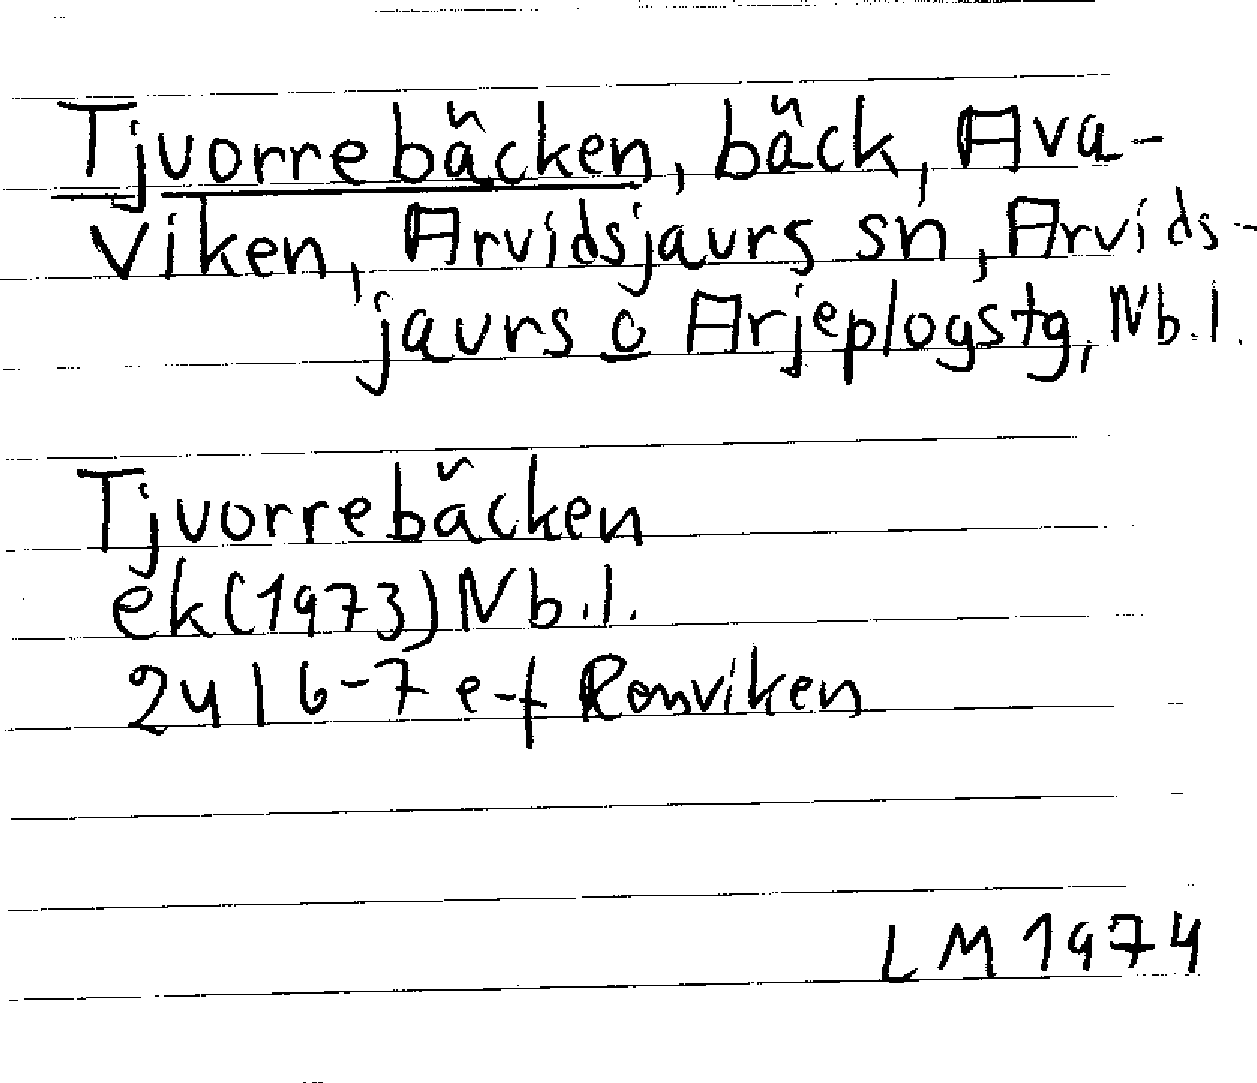 Tjvorrebäcken, bäck, Ava-
viken, Arvidsjaurs sn, Arvids-
jaurs o Arjeplogstg, Nb.l.
Tjvorrebäcken
ek(1973)Nb.l.
24I 6-7 e-f Renviken
LM 1974